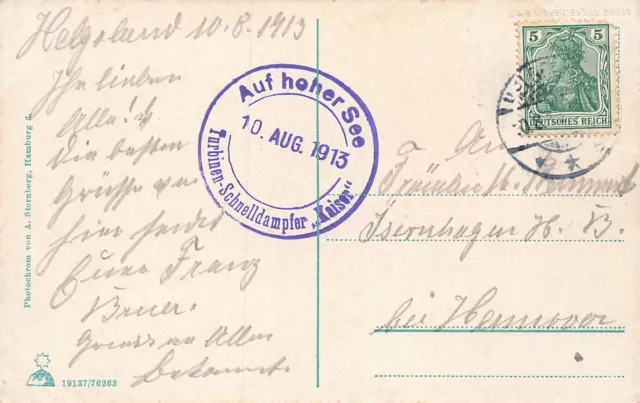 Helgoland 10.8.1913
Ihr lieben
Alle!
Die besten
Grüsse von
hier sendet
Eure Franz
Gruss an Alle
Bekannte.
Auf hoher See
10. AUG. 1913
Turbinen-Schnelldampfer „Kaiser“
5 5
DEUTSCHES REICH
An
Fräulein
Isernhagen H. B.
bei Hannover
Photochrom von A. Sternberg, Hamburg 8.
19137/76263